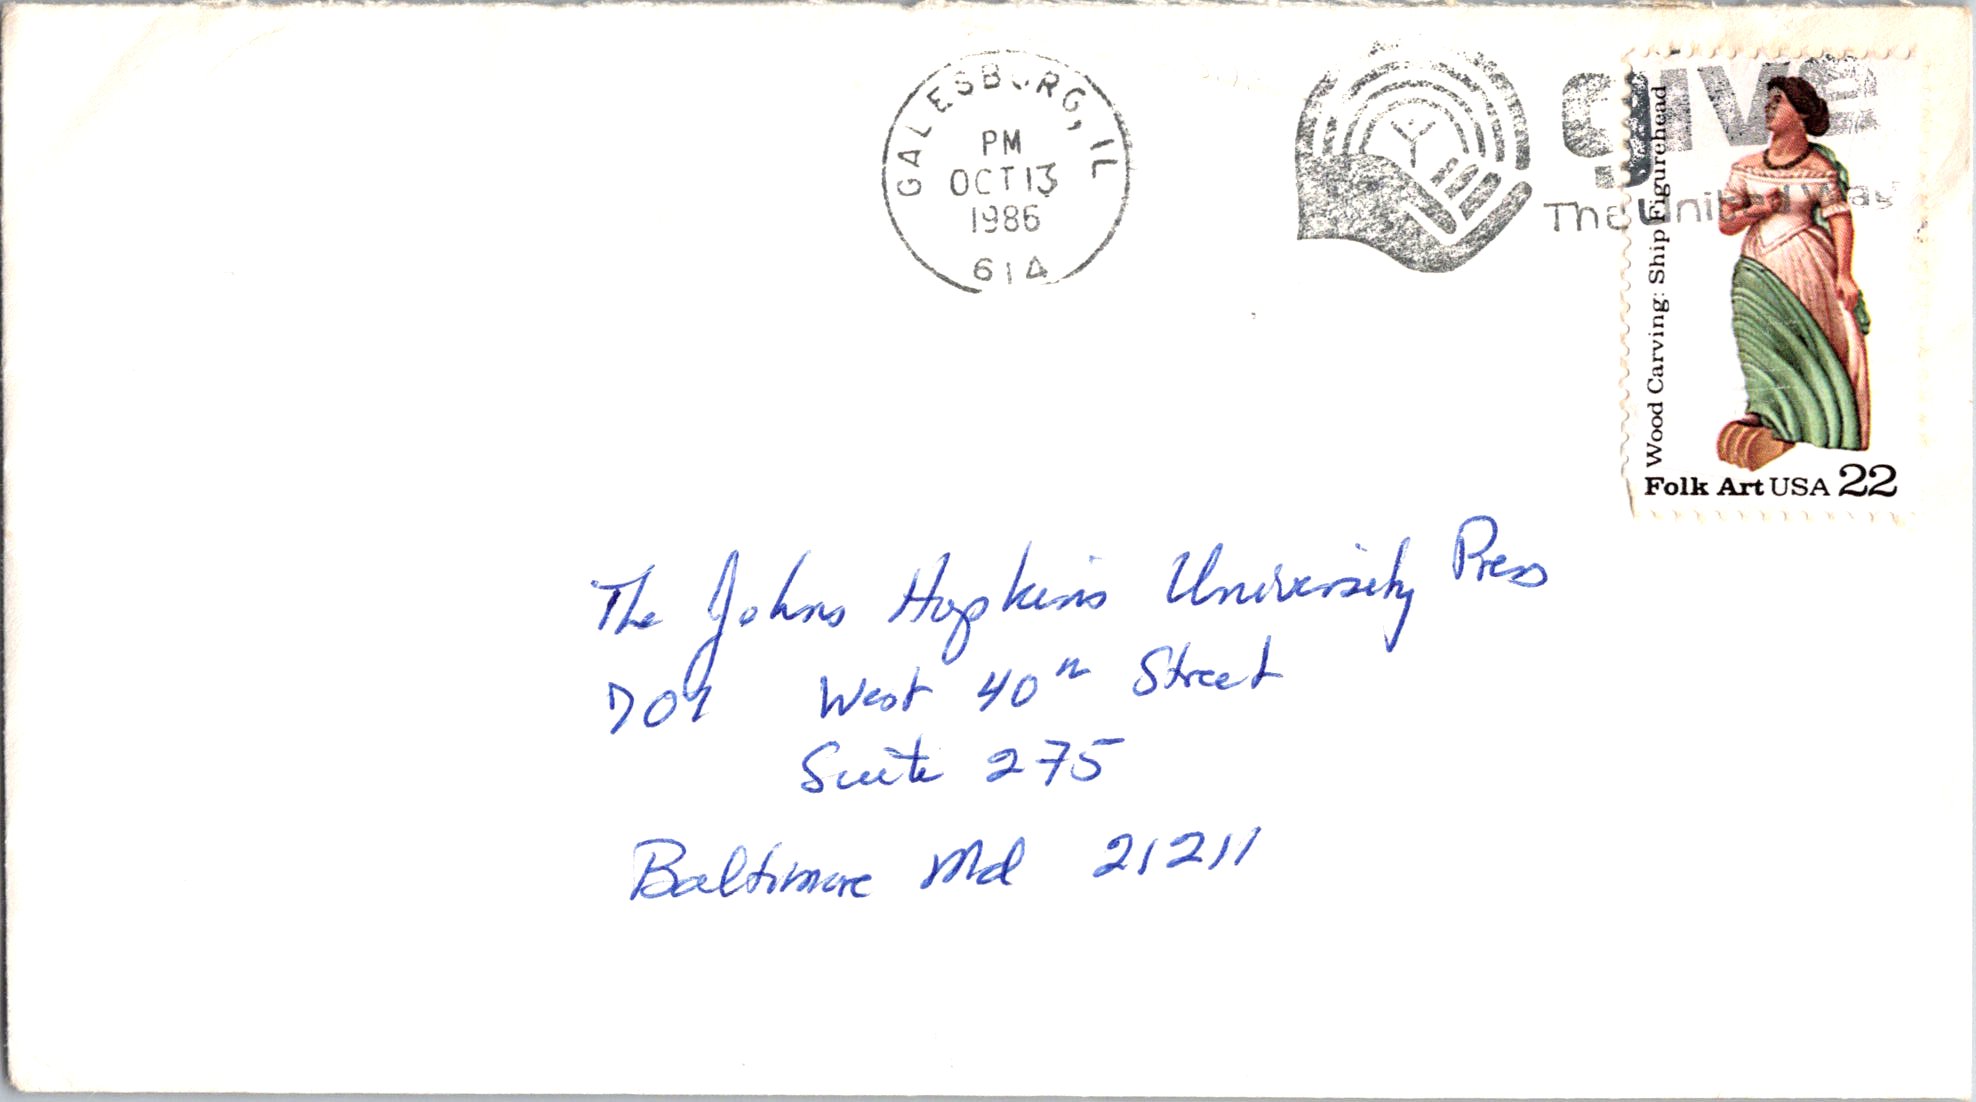 GALESBURG, IL
PM
OCT 13
1986
61A
give
The United Way
Wood Carving: Ship Figurehead
Folk Art USA 22
The Johns Hopkins University Press
701 West 40th Street
Suite 275
Baltimore Md 21211